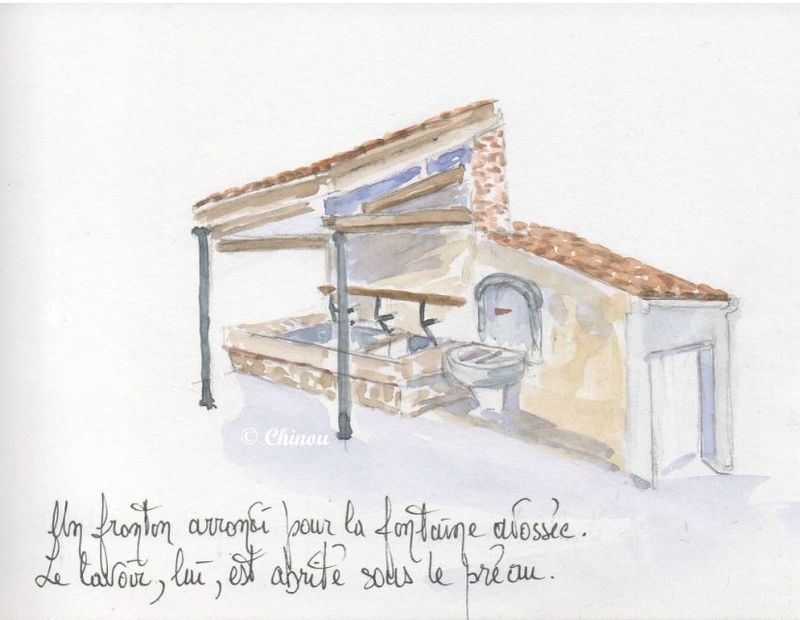 © Chinou
Un fronton arrondi pour la fontaine adossée.
Le lavoir, lui, est abrité sous le préau.